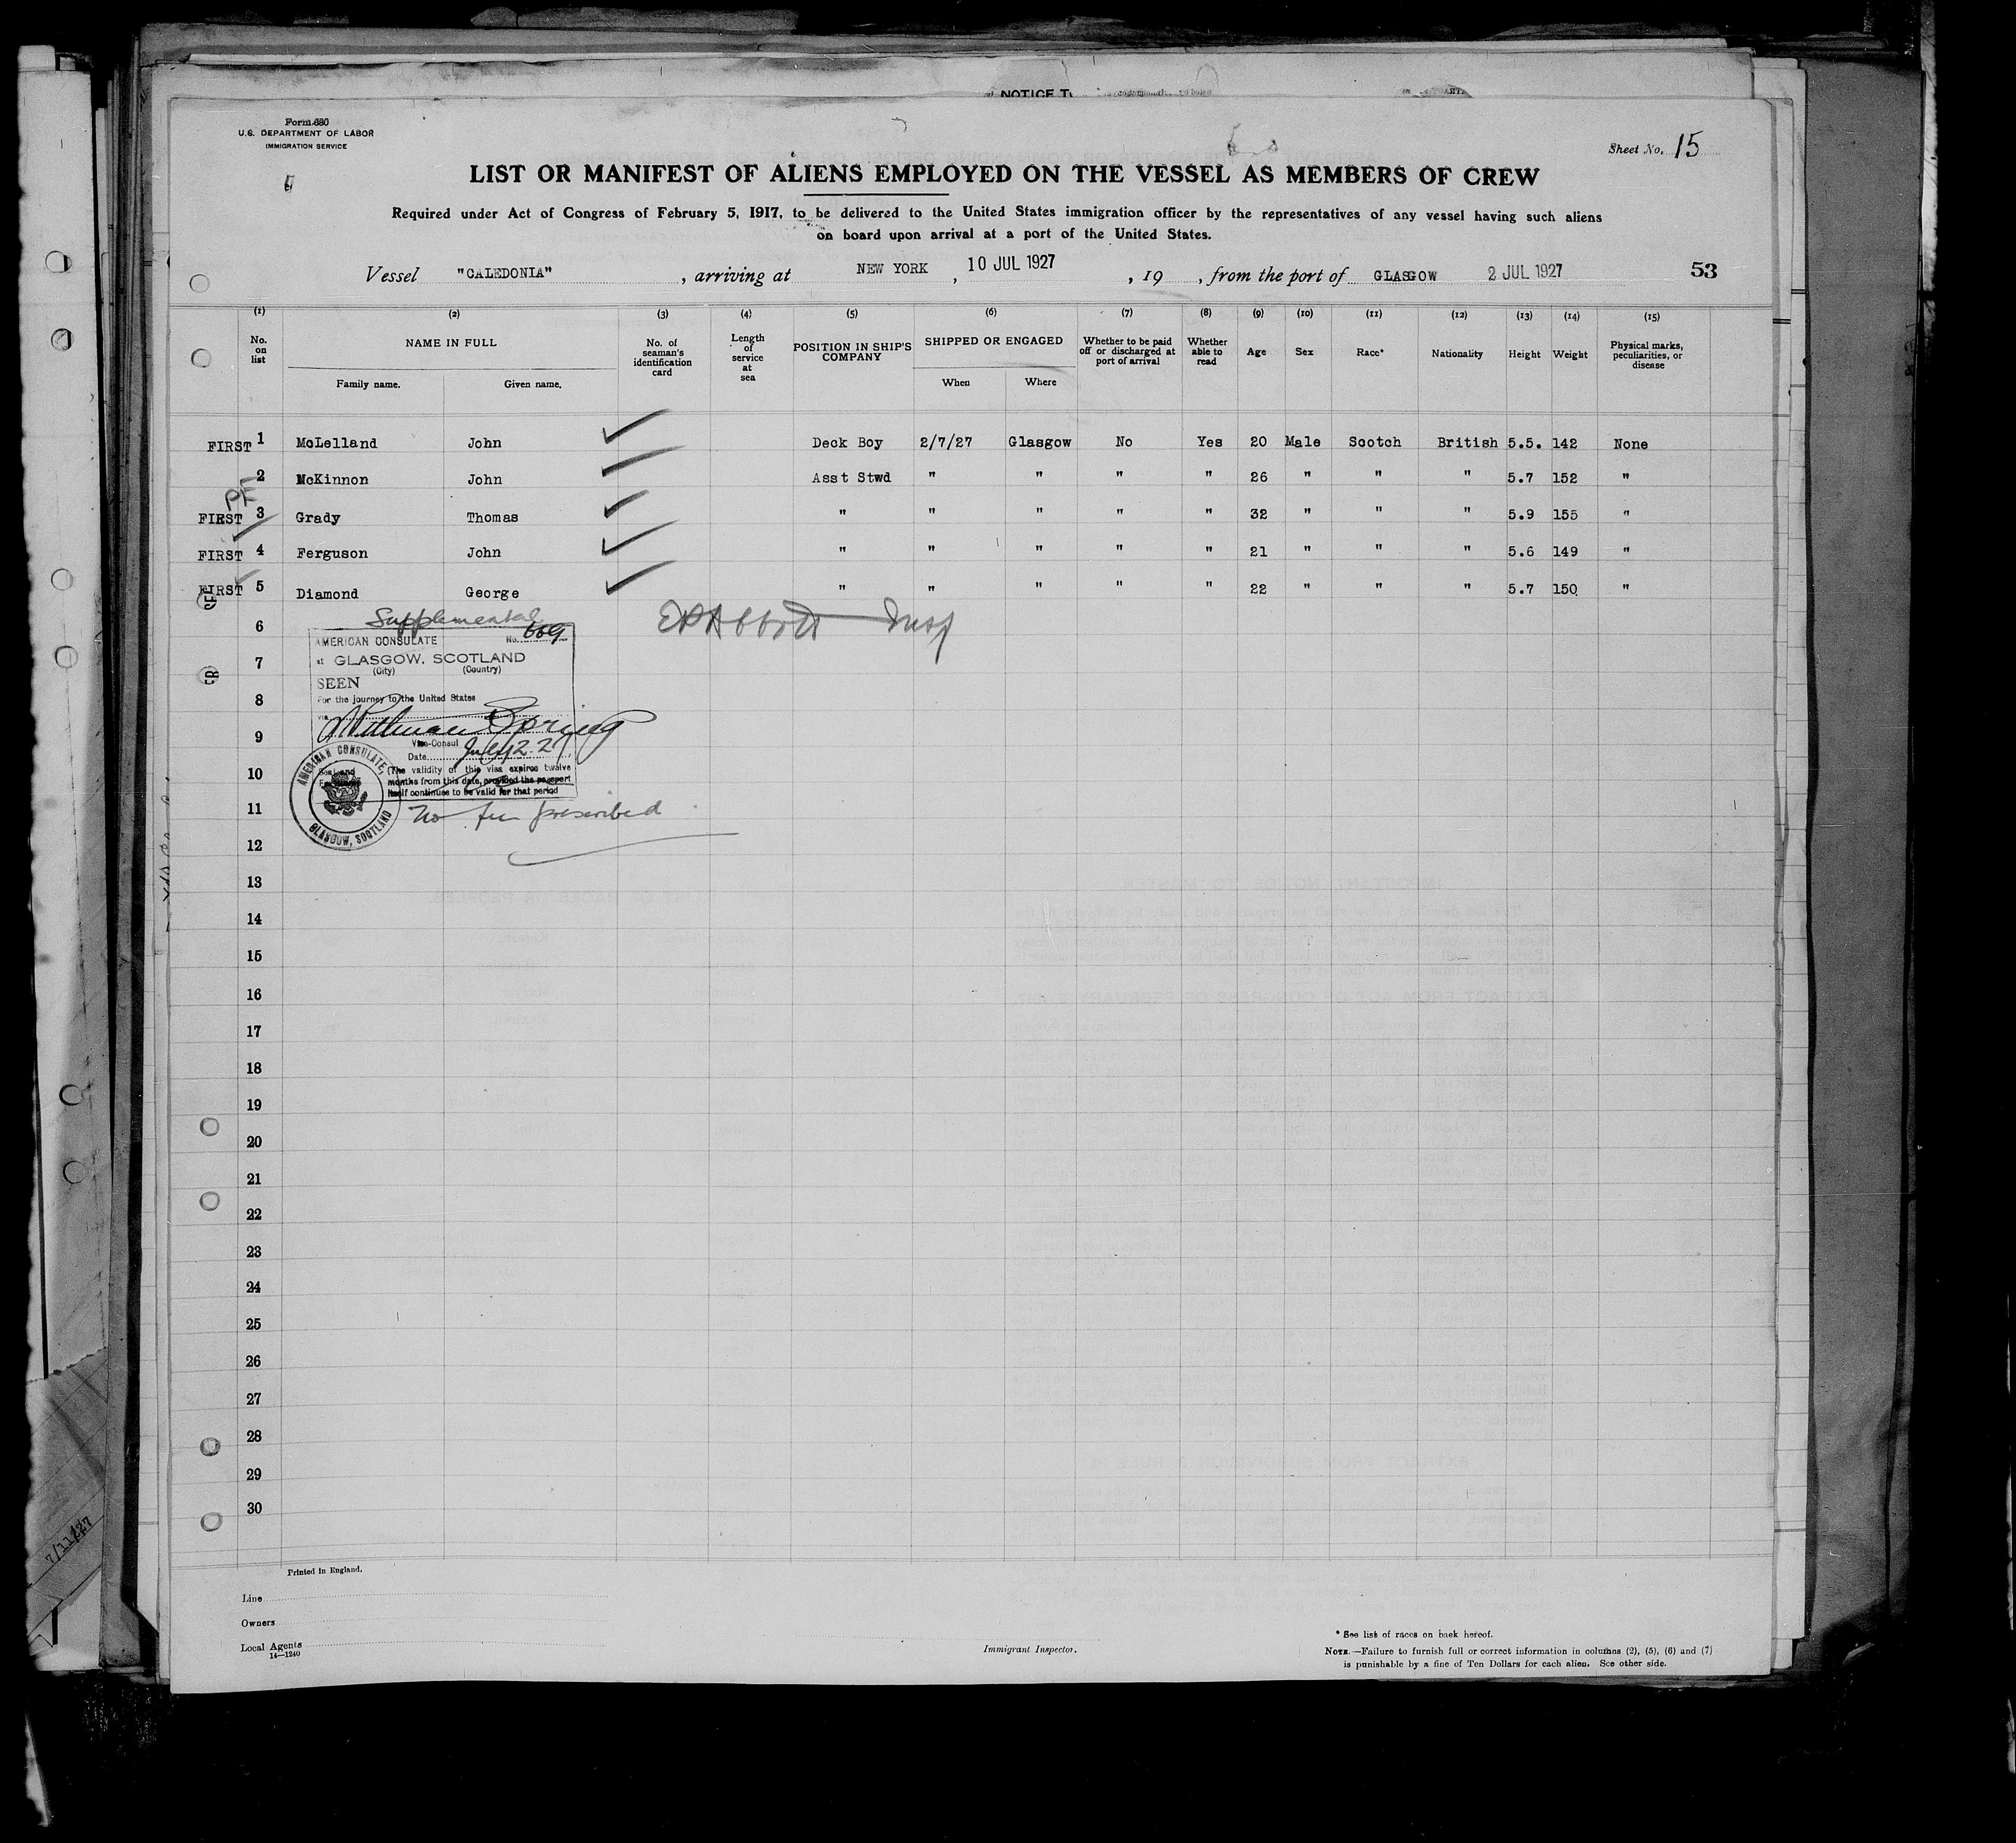 NOTICE T
Form 680
U.S. DEPARTMENT OF LABOR
IMMIGRATION SERVICE
Sheet No. 15
LIST OR MANIFEST OF ALIENS EMPLOYED ON THE VESSEL AS MEMBERS OF CREW
Required under Act of Congress of February 5, 1917, to be delivered to the United States immigration officer by the representatives of any vessel having such aliens
on board upon arrival at a port of the United States.
Vessel "CALEDONIA", arriving at NEW YORK, 10 JUL 1927, 19 , from the port of GLASGOW 2 JUL 1927 53
(1) (2) (3) (4) (5) (6) (7) (8) (9) (10) (11) (12) (13) (14) (15)
No. on list NAME IN FULL Family name. Given name. No. of seaman's identification card Length of service at sea POSITION IN SHIP'S COMPANY SHIPPED OR ENGAGED When Where Whether to be paid off or discharged at port of arrival Whether able to read Age Sex Race* Nationality Height Weight Physical marks, peculiarities, or disease
FIRST 1 McLelland John Deck Boy 2/7/27 Glasgow No Yes 20 Male Scotch British 5.5. 142 None
2 McKinnon John Asst Stwd " " " " 26 " " " 5.7 152 "
PF
FIRST 3 Grady Thomas " " " " " 32 " " " 5.9 155 "
FIRST 4 Ferguson John " " " " " 21 " " " 5.6 149 "
FIRST 5 Diamond George " " " " " 22 " " " 5.7 150 "
Supplemental
6
AMERICAN CONSULATE No. 669
7
at GLASGOW, SCOTLAND
(City) (Country)
SEEN
8
For the journey to the United States
via
9
Vice-Consul
Date July 2. 27
10
(The validity of this visa expires twelve
months from this date, provided the passport
itself continues to be valid for that period
AMERICAN CONSULATE, GLASGOW, SCOTLAND
11
No fee prescribed
12
13
14
15
16
17
18
19
20
21
22
23
24
25
26
27
28
29
30
Printed in England.
Line
Owners
Local Agents
14—1240
Immigrant Inspector.
* See list of races on back hereof.
NOTE.—Failure to furnish full or correct information in columns (2), (5), (6) and (7)
is punishable by a fine of Ten Dollars for each alien. See other side.